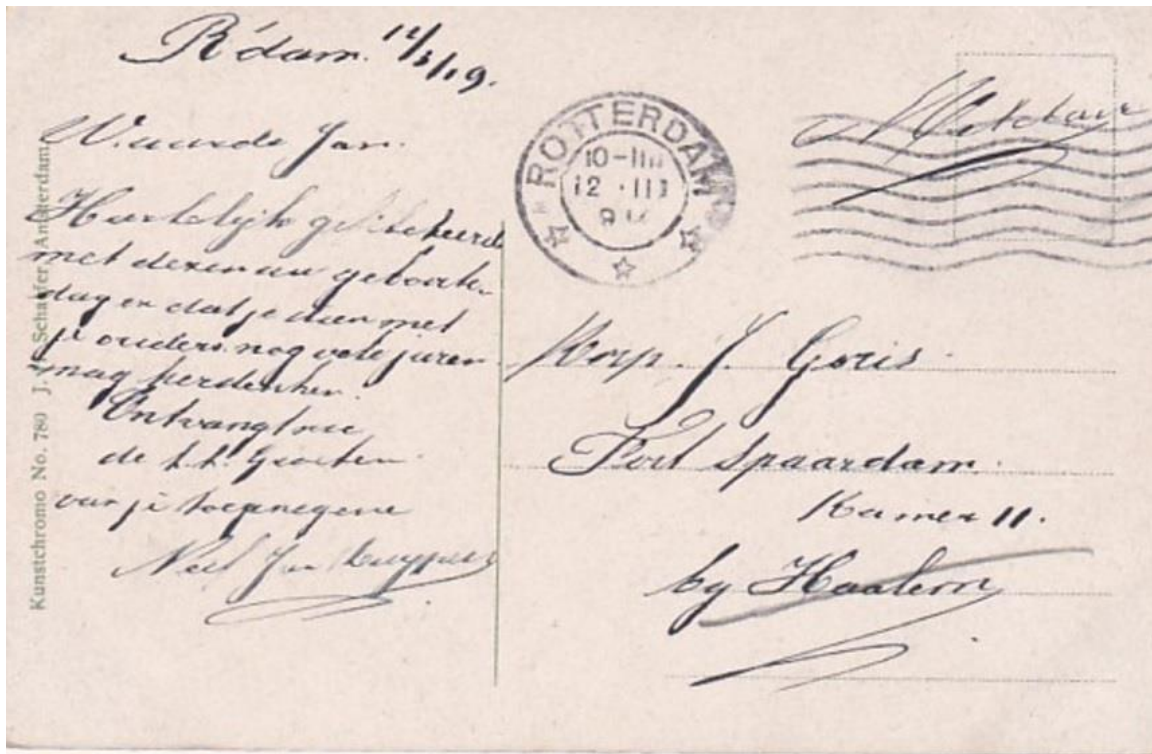 R'dam. 12/3/19.
Waarde Jan.
Hartelijk gefeliciteerd
met dezen uw geboorte-
dag en dat je dien met
je ouders nog vele jaren
mag herdenken.
Ontvang
de h.h. Groeten
van je toegenegene
Neef Jan Kuypers
Kunstchromo No. 780 J. H. Schaefer, Amsterdam
ROTTERDAM
12 III
Militair
Korp. J. Goris.
Fort Spaardam.
Kamer 11.
by Haalem